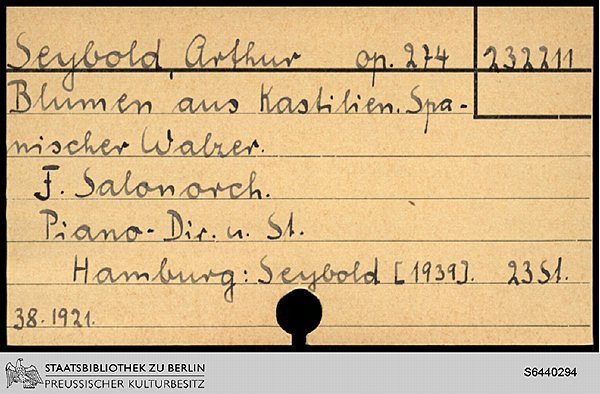 Seybold, Arthur op. 274 232211
Blumen aus Kastilien. Spa-
nischer Walzer.
F. Salonorch.
Piano-Dir. u. St.
Hamburg: Seybold [1939]. 23 St.
38.1921.
STAATSBIBLIOTHEK ZU BERLIN
PREUSSISCHER KULTURBESITZ
S6440294